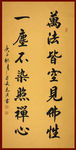 萬法皆空見佛性
一塵不染照禪心